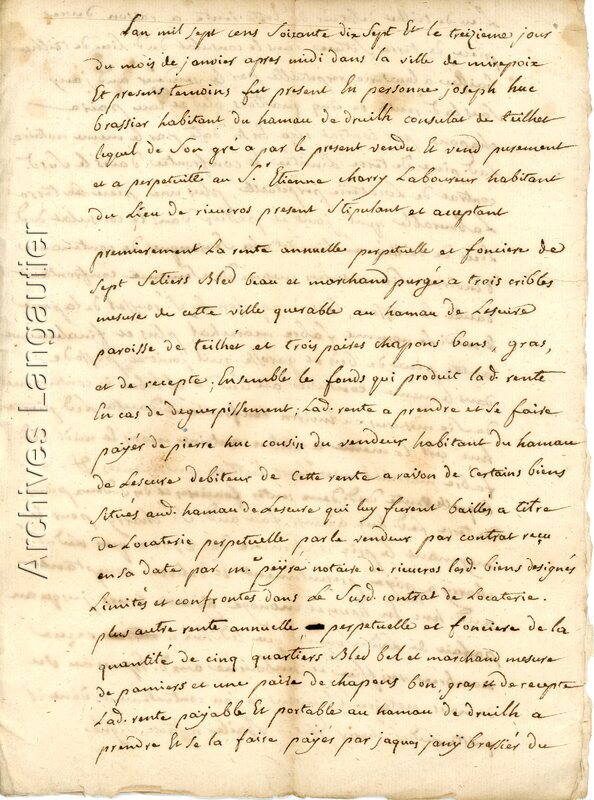 Lan mil sept cens Soixante dix Sept Et le treizieme jour
du mois de janvier apres midi dans la ville de mirepoix
Et presens temoins fut present En personne joseph huc
brassier habitant du hamau de druilh consulat de teilhet
lequel de Son gré a par le present vendu Et vend purement
et a perpetuités au Sr. Etienne charry Laboureur habitant
du Lieu de rieucros present Stipulant et acceptant
premierement La rente annuelle perpetuelle et fonciere de
Sept Setiers Bled beau et marchand purgé a trois cribles
mesure de cette ville querable au hamau de Lescure
paroisse de teilhet et trois paires chapons bons, gras,
et de recepte; Ensemble le fonds qui produit lad. rente
En cas de deguerpissement; Lad. rente a prendre et se faire
payér de pierre huc cousin du vendeur habitant du hamau
de Lescure debiteur de Cette rente a raison de Certains biens
Situés aud. hamau de Lescure qui luy furent baillés a titre
de Locaterie perpetuelle par le vendeur par contrat reçu
en sa date par me. peyre notaire de rieucros lesd. biens designés
Limités et confrontés dans Le Susd. contrat de Locaterie.
plus autre rente annuelle perpetuelle et fonciere de la
quantité de cinq quartiers Bled bel et marchand mesure
de pamiers et une paire de chapons bon, gras et de recepte
Lad. rente payable Et portable au hamau de druilh a
prendre Et se la faire payér par jaques brassiés du
Archives Langautier